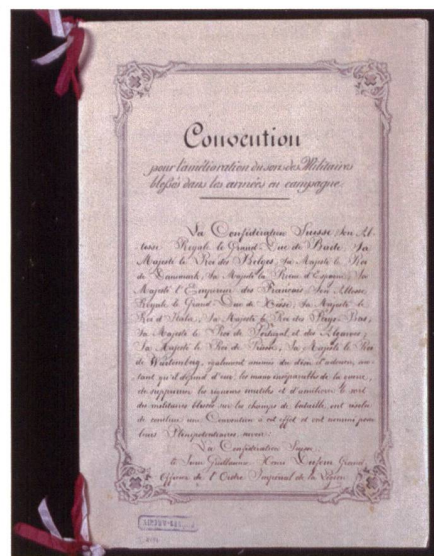 Convention
pour l'amélioration du sort des Militaires
blessés dans les armées en campagne.
La Confédération Suisse, Son Al-
tesse Royale le Grand-Duc de Bade, Sa
Majesté le Roi des Belges, Sa Majesté le Roi
de Danemark, Sa Majesté la Reine d'Espagne, Sa
Majesté l'Empereur des Français, Son Altesse
Royale le Grand-Duc de Hesse, Sa Majesté le
Roi d'Italie, Sa Majesté le Roi des Pays-Bas,
Sa Majesté le Roi de Portugal et des Algarves,
Sa Majesté le Roi de Prusse, Sa Majesté le Roi
de Würtemberg, également animés du désir d'adoucir, au-
tant qu'il dépend d'eux, les maux inséparables de la guerre,
de supprimer les rigueurs inutiles et d'améliorer le sort
des militaires blessés sur les champs de bataille, ont résolu
de conclure une Convention à cet effet et ont nommé pour
leurs Plénipotentiaires, savoir:
La Confédération Suisse:
le Sieur Guillaume Henri Dufour, Grand
Officier de l'Ordre Impérial de la Légion